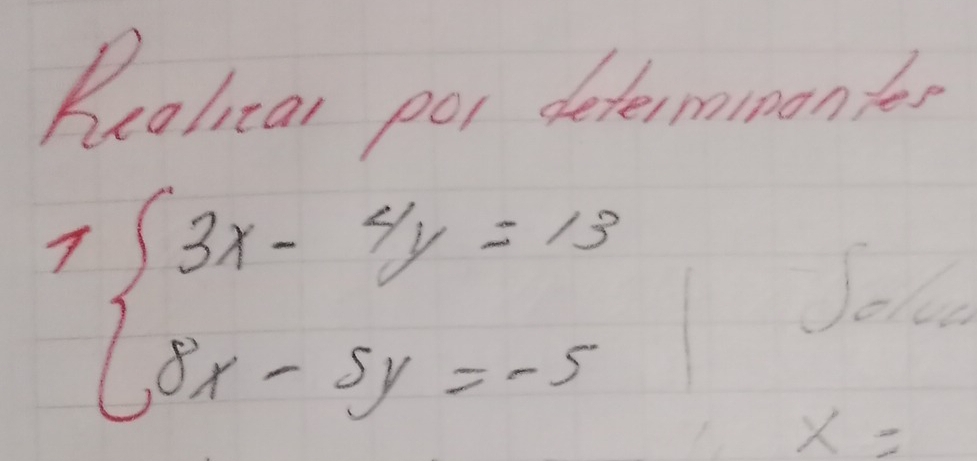 Realizar por determinantes
1 { 3x - 4y = 13
8x - 5y = -5
x =